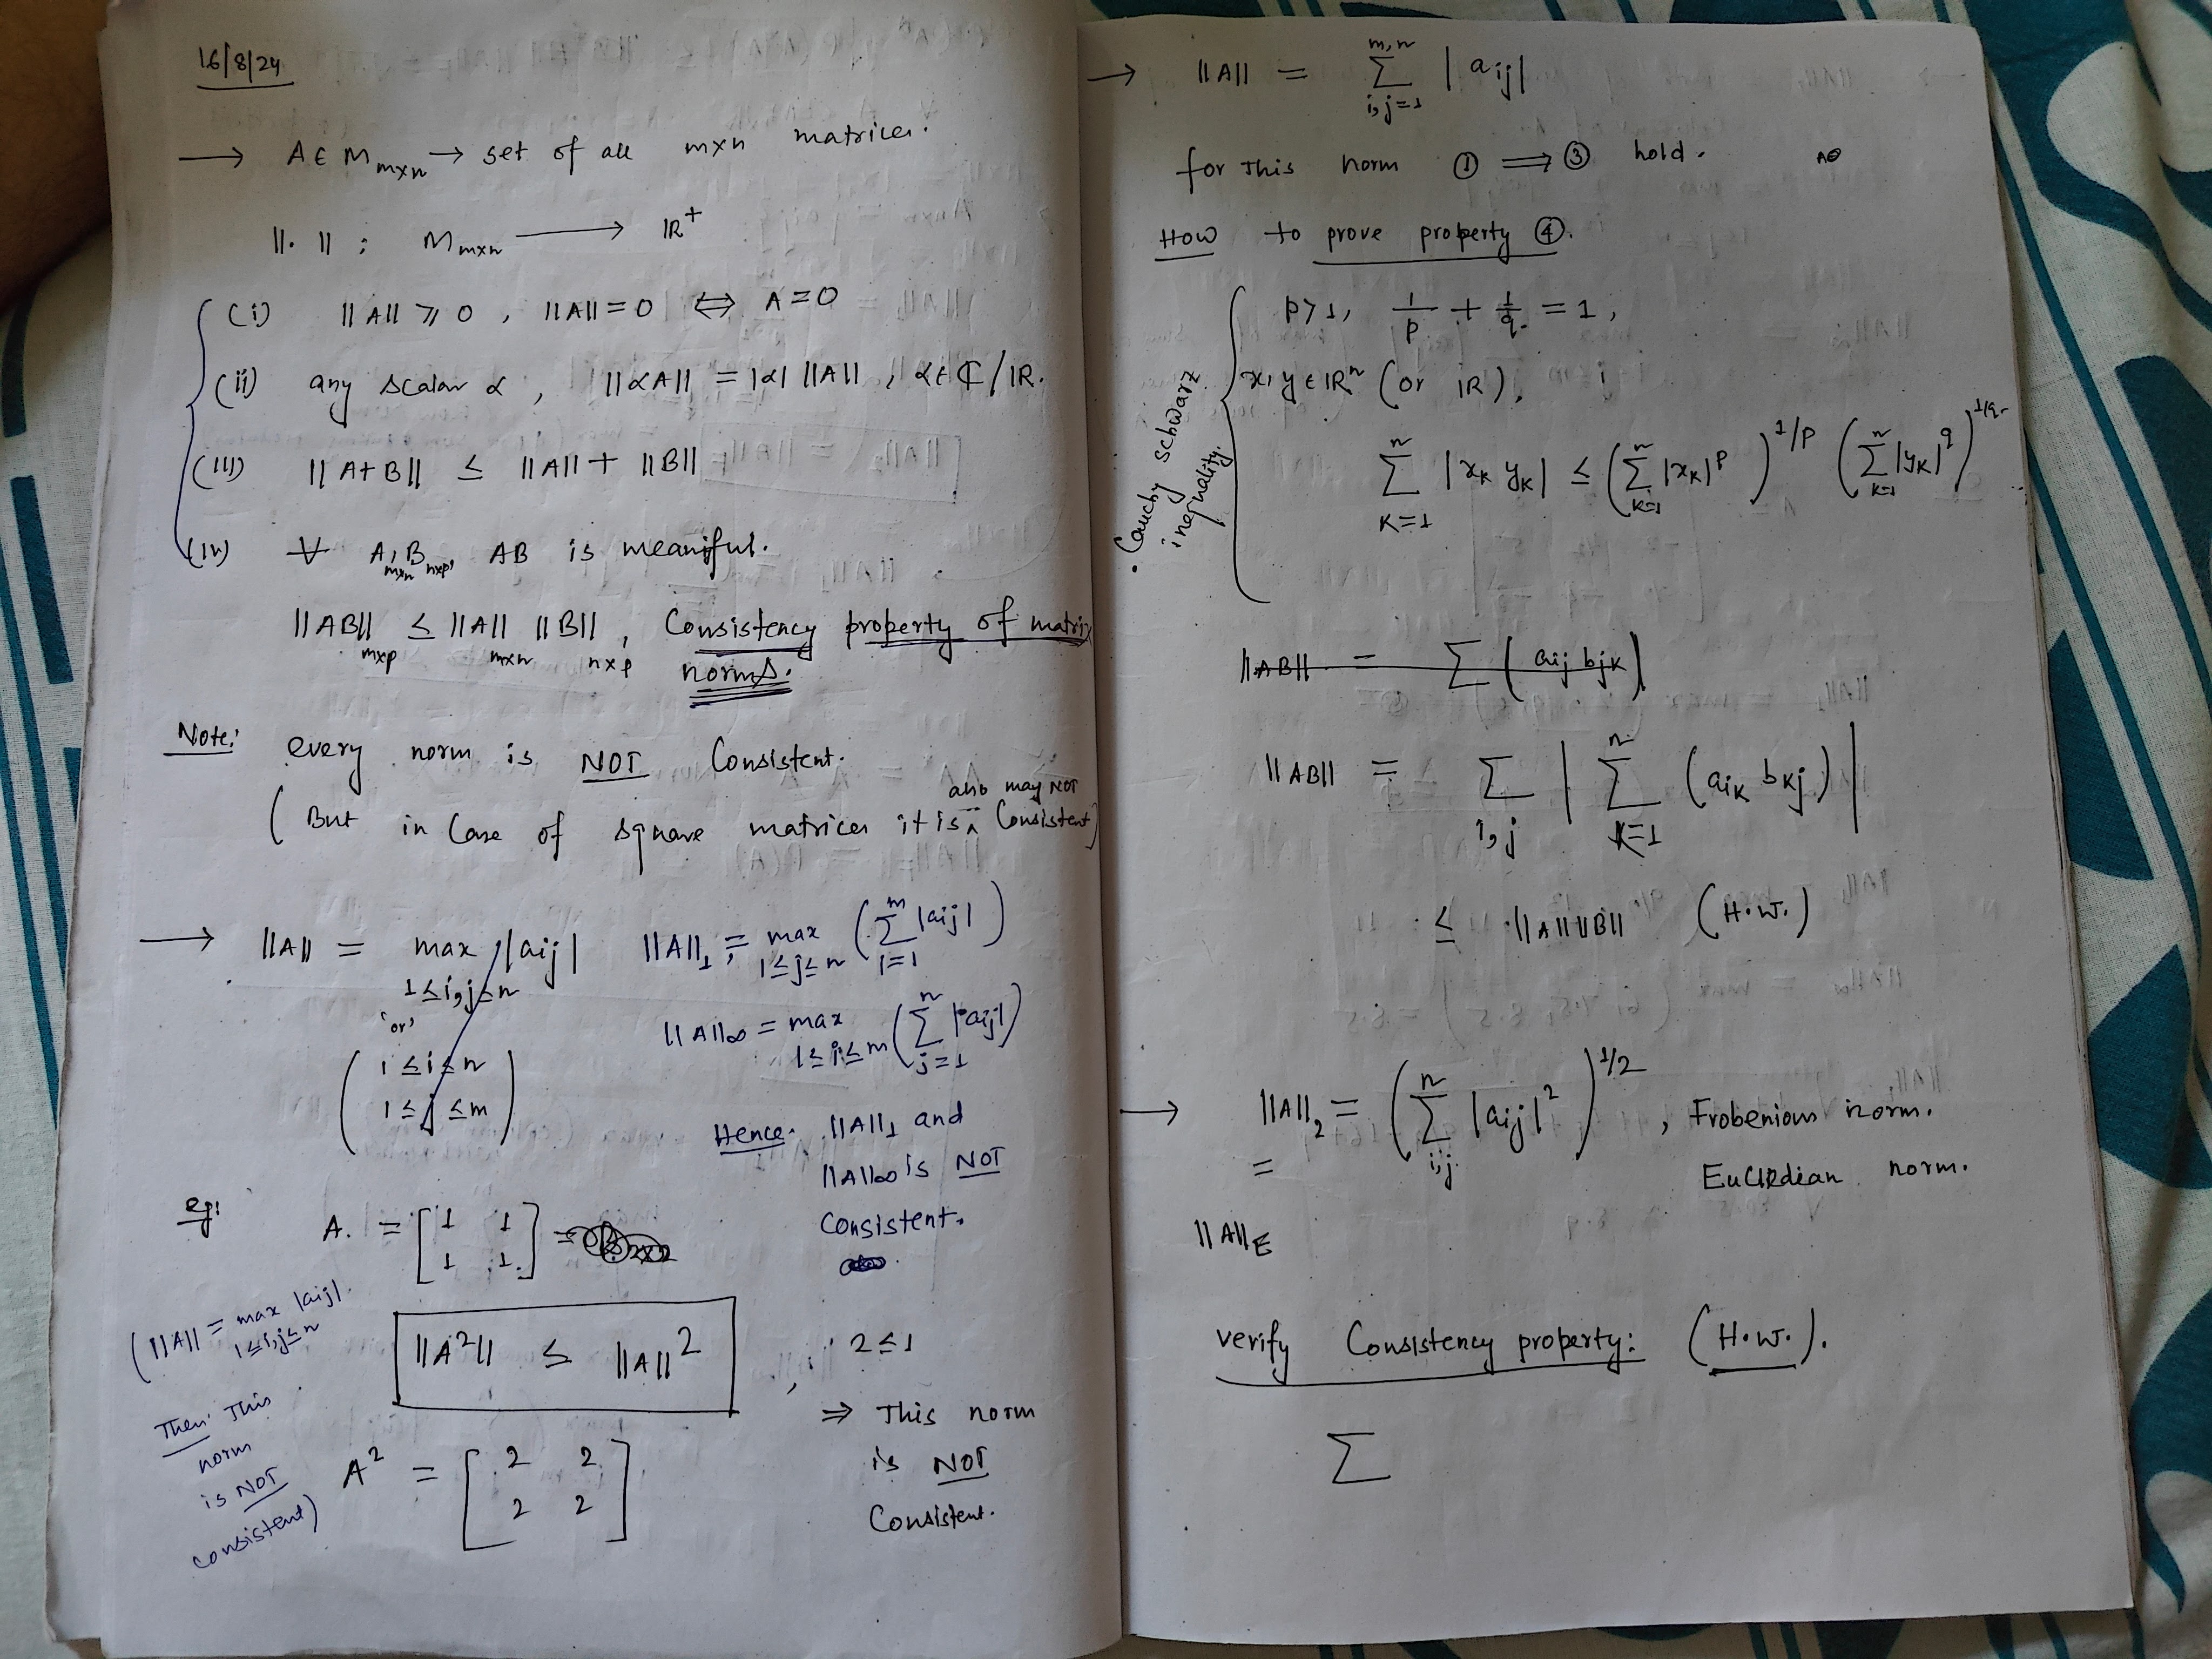 16/8/24
→ A ∈ M m×n → set of all m×n matrices.
||·|| : M m×n ⟶ IR⁺
(i) ||A|| ≥ 0 , ||A|| = 0 ⇔ A = 0
(ii) any scalar α , ||αA|| = |α| ||A|| , α ∈ ₵/IR.
(iii) ||A+B|| ≤ ||A|| + ||B||
(iv) ∀ A m×n, B n×p, AB is meaniful.
||AB|| m×p ≤ ||A|| m×n ||B|| n×p , Consistency property of matrix
norms.
Note: every norm is NOT Consistent.
(But in Case of square matrices it is also may NOT Consistent)
→ ||A|| = max |aij| 1≤i,j≤n
'or'
(1≤i≤n
1≤j≤m)
||A||₁ = max 1≤j≤n (Σ i=1 m |aij|)
||A||∞ = max 1≤i≤m (Σ j=1 n |aij|)
Hence. ||A||₁ and
||A||∞ is NOT
Consistent.
eg: A. = [1 1
1 1.]
(||A|| = max |aij|. 1≤i,j≤n
Then: This
norm
is NOT
consistent)
||A²|| ≤ ||A||² , 2 ≤ 1
⇒ This norm
is NOT
Consistent.
A² = [2 2
2 2]
→ ||A|| = Σ i,j=1 m,n |aij|
for This norm ① ⟹ ③ hold.
How to prove property ④.
Cauchy schwarz
inequality
p>1, 1/p + 1/q = 1,
x, y ∈ IRⁿ (or IR),
Σ K=1 n |xK yK| ≤ (Σ K=1 n |xK|^p)^1/p (Σ K=1 n |yK|^q)^1/q
||AB|| = Σ (aij bjK)
||AB|| = Σ i,j |Σ K=1 n (aiK bKj)|
≤ ||A|| ||B|| (H.W.)
→ ||A||₂ = (Σ i,j n |aij|²)^1/2 , Frobenious norm.
= Euclidean norm.
||A||E
verify Consistency property: (H.W.).
Σ